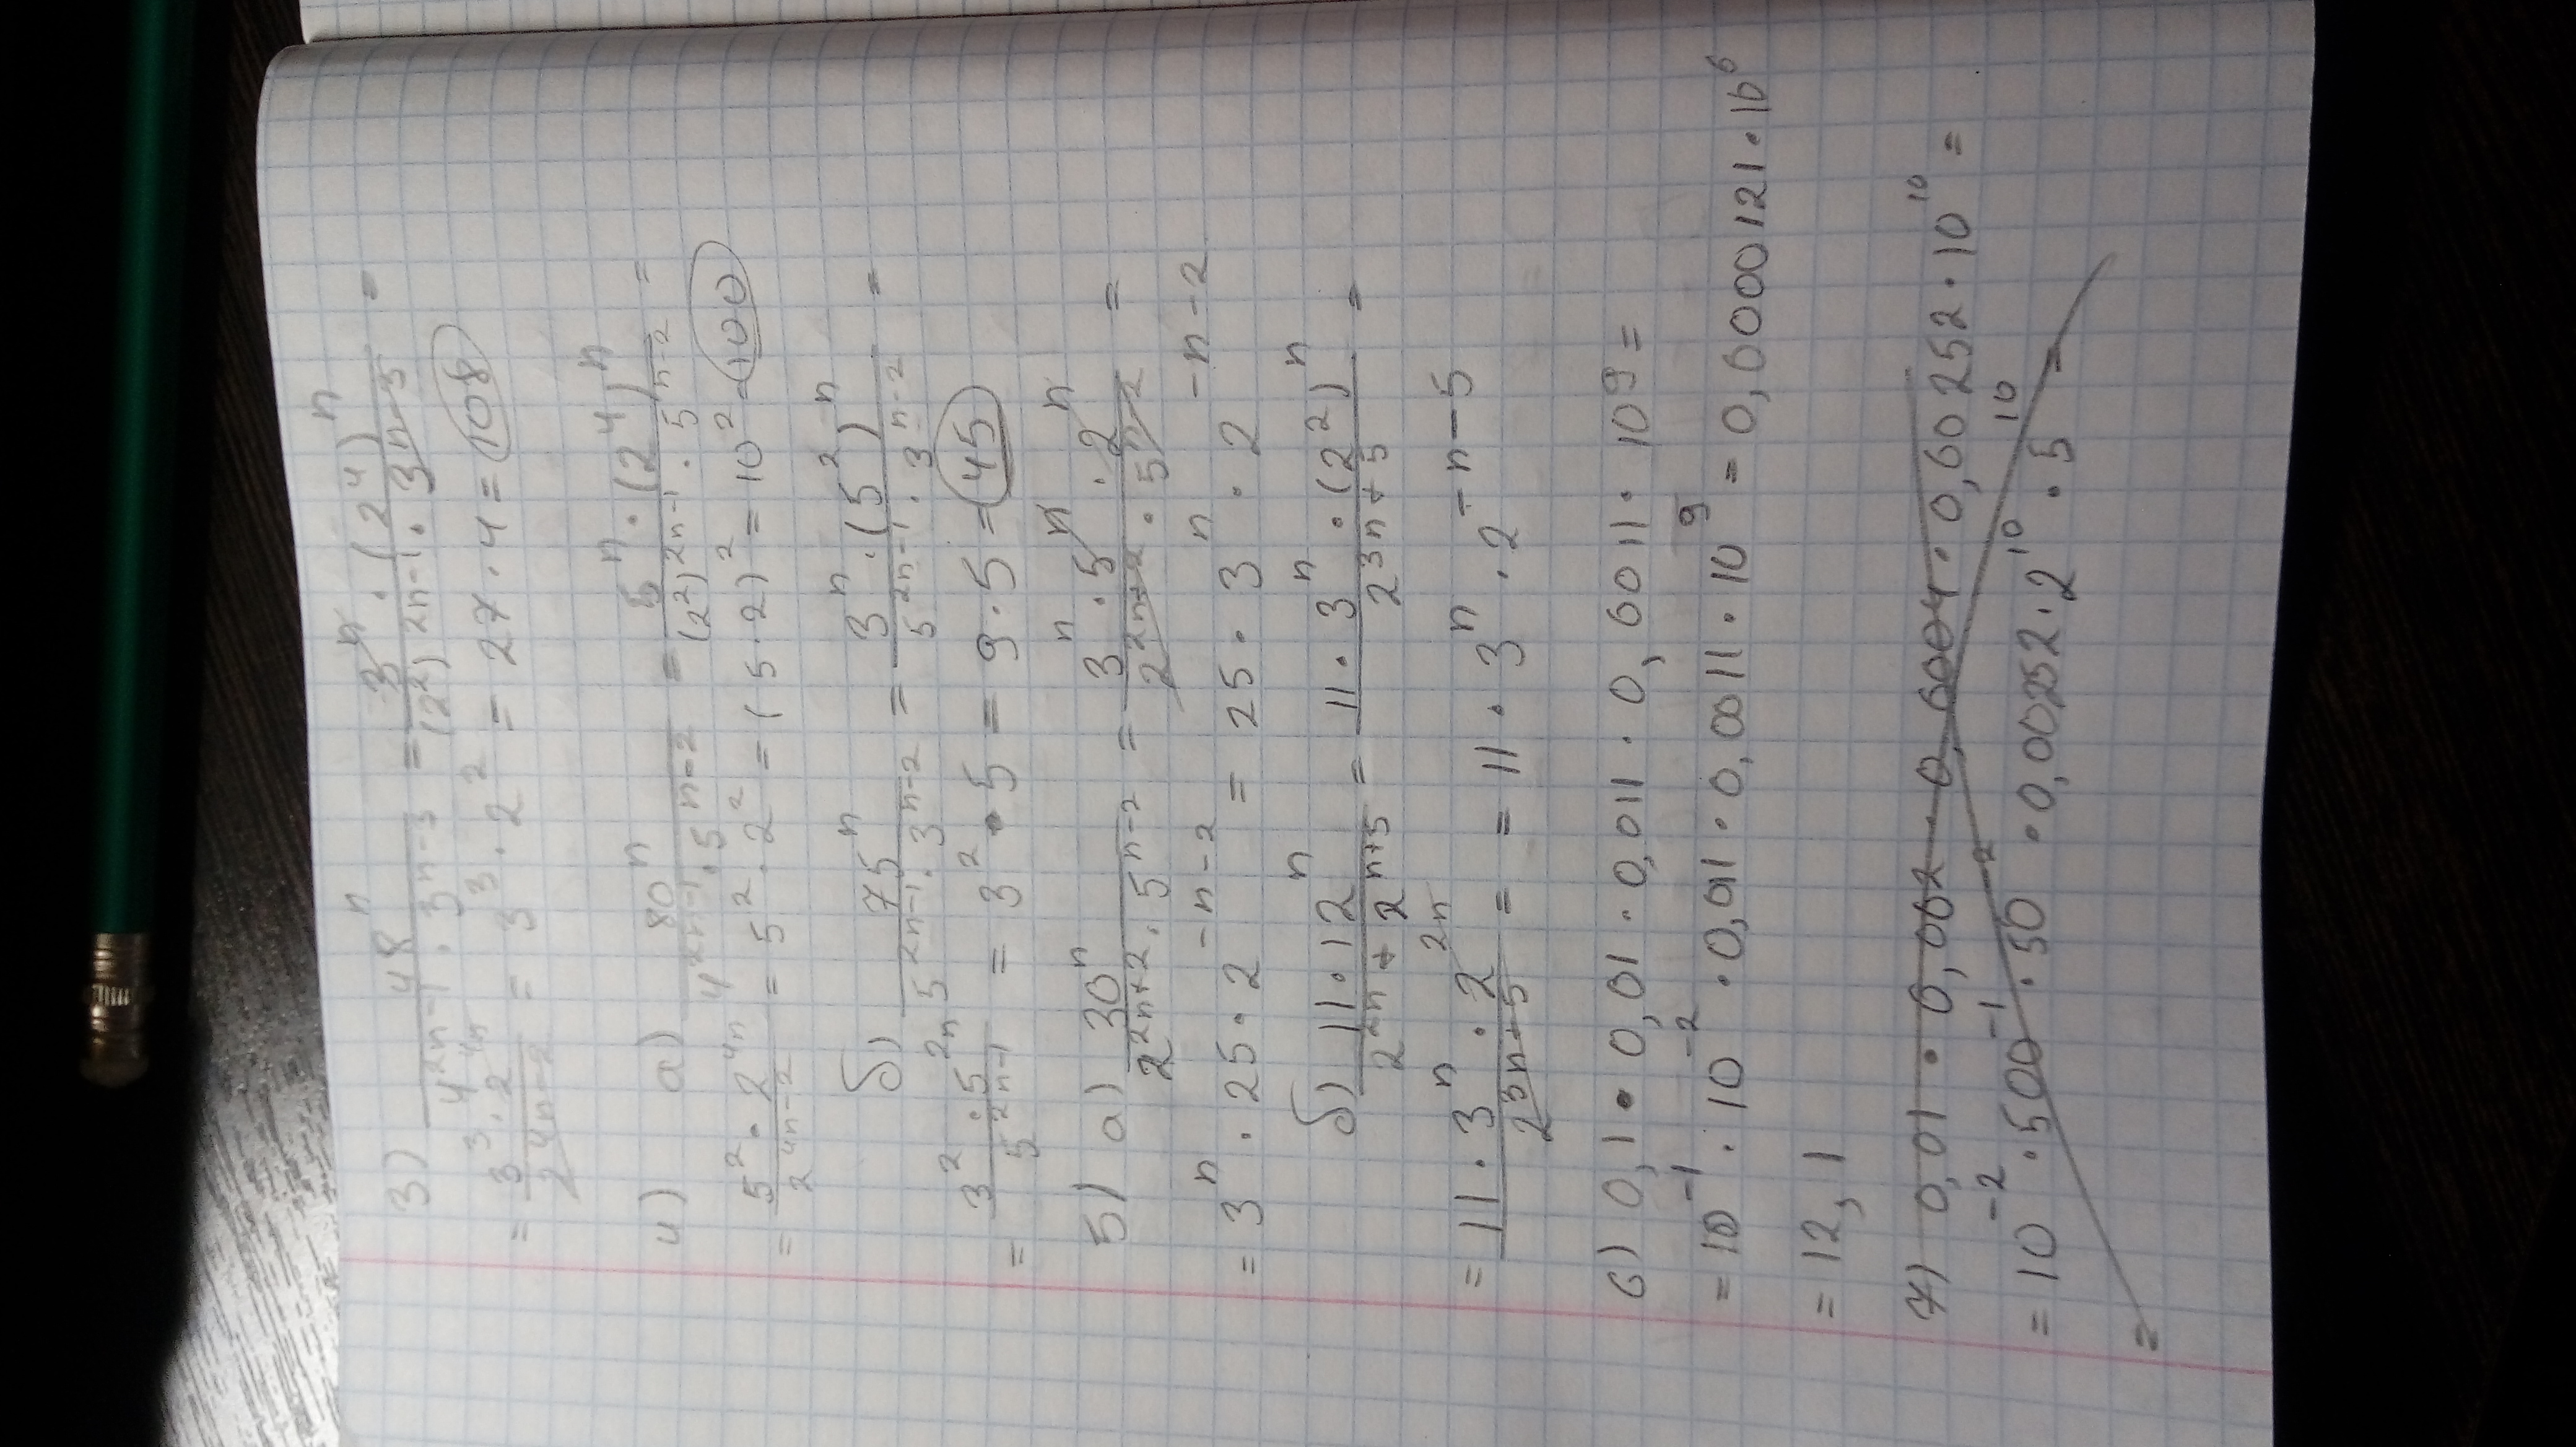 3) 48^n / (4^(2n-1) · 3^(n-3)) = 3^n · (2^4)^n / ((2^2)^(2n-1) · 3^(n-3)) =
= 3^3 · 2^(4n) / 2^(4n-2) = 3^3 · 2^2 = 27 · 4 = 108
4) а) 80^n / (4^(2n-1) · 5^(n-2)) = 5^n · (2^4)^n / ((2^2)^(2n-1) · 5^(n-2)) =
= 5^2 · 2^(4n) / 2^(4n-2) = 5^2 · 2^2 = (5 · 2)^2 = 10^2 = 100
б) 75^n / (5^(2n-1) · 3^(n-2)) = 3^n · (5^2)^n / (5^(2n-1) · 3^(n-2)) =
= 3^2 · 5^(2n) / 5^(2n-1) = 3^2 · 5 = 9 · 5 = 45
5) а) 30^n / (2^(2n+2) · 5^(n-2)) = 3^n · 5^n · 2^n / (2^(2n+2) · 5^(n-2)) =
= 3^n · 25 · 2^(-n-2) = 25 · 3^n · 2^(-n-2)
б) 11 · 12^n / (2^(2n) + 2^(n+5)) = 11 · 3^n · (2^2)^n / 2^(3n+5) =
= 11 · 3^n · 2^(2n) / 2^(3n+5) = = 11 · 3^n · 2^(-n-5)
6) 0,1 · 0,01 · 0,011 · 0,0011 · 10^9 =
= 10^(-1) · 10^(-2) · 0,011 · 0,0011 · 10^9 = 0,0000121 · 10^6
= 12,1
7) 0,01 · 0,002 · 0,004 · 0,00252 · 10^10 =
= 10^(-2) · 500^(-1) · 50^(-2) · 0,00252 · 2^10 · 5^10 =
=